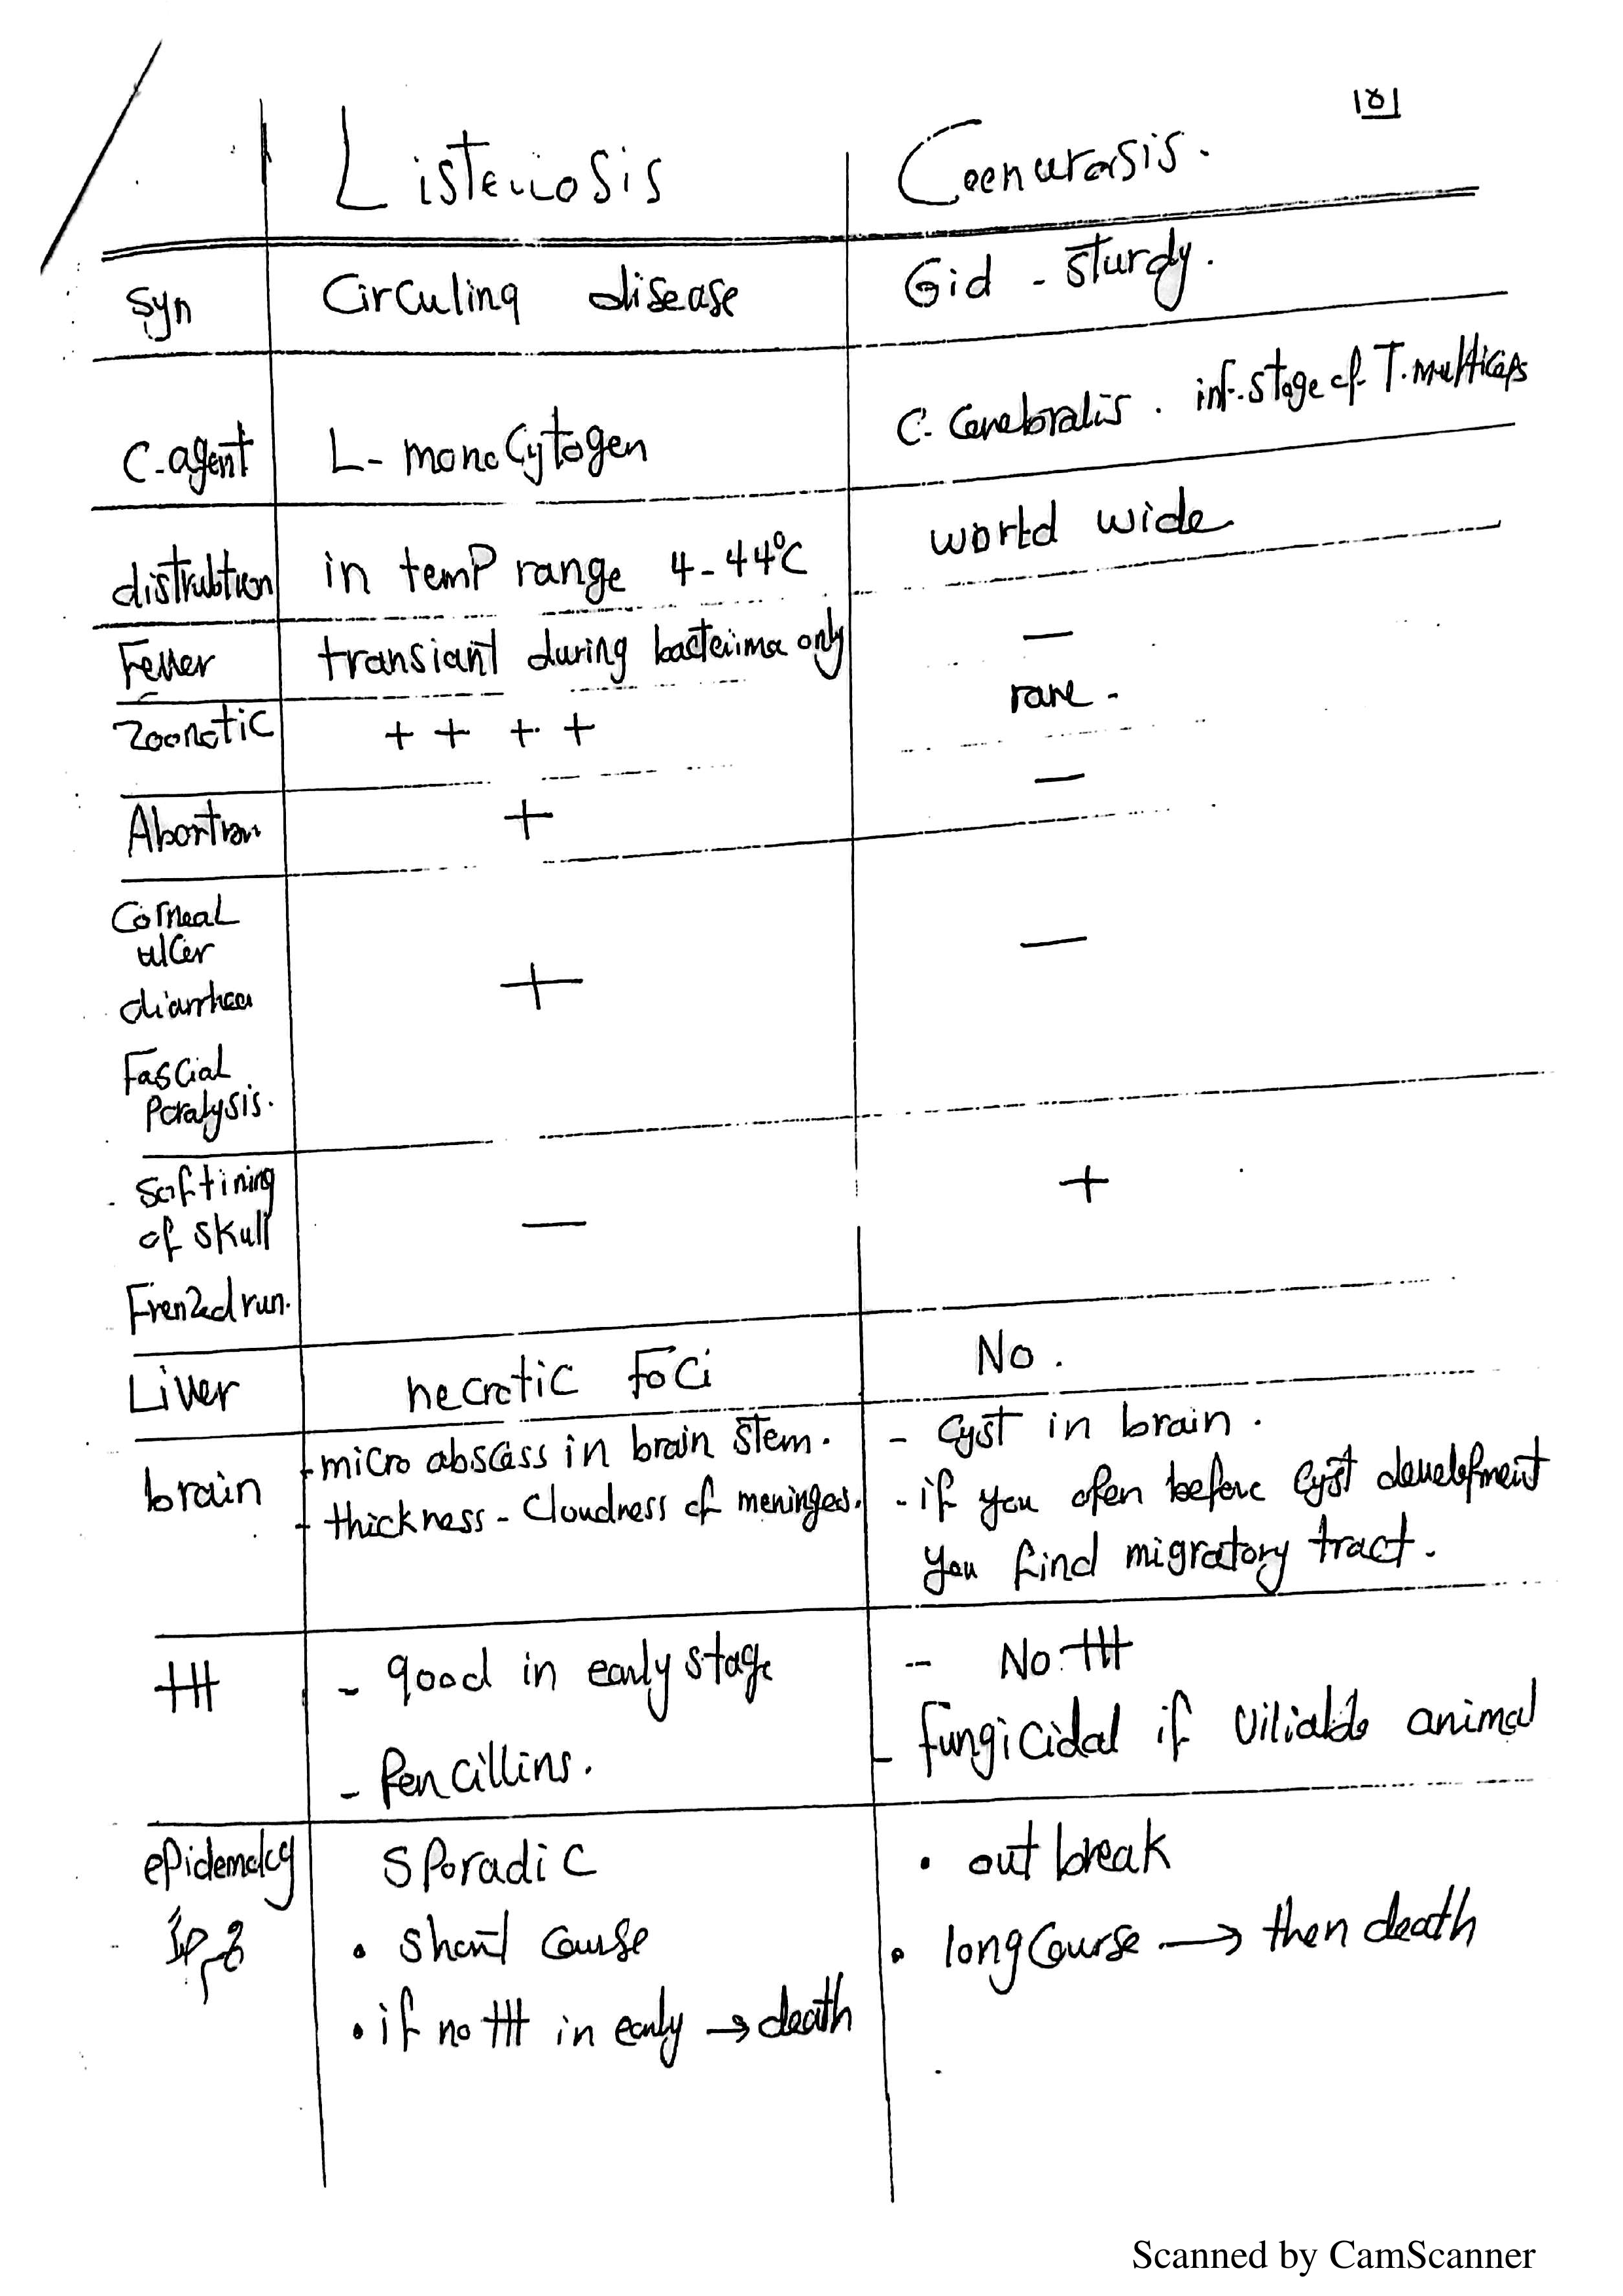 Listeriosis Coenurosis.
Syn Circuling disease Gid - sturdy.
C-agent L- monocytogen C- Cerebralis . inf. stage of T. multiceps
distrubtion in temp range 4-44°C world wide
Fever transiant during bacterima only —
Zoonotic + + + + rare -
Abortion + —
Corneal
ulcer
diarrhea + —
Fascial
Paralysis.
Softining
of skull — +
Frenzed run.
Liver necrotic Foci No .
brain - micro abscess in brain stem. - Cyst in brain .
- thickness - cloudness of meninges. - if you open before Cyst development
you find migratory tract .
ttt - good in early stage - No ttt
- Pencillins. - fungicidal if
animal
epidemology Sporadic • out break
• short course • long Course → then death
• if no ttt in early → death
Scanned by CamScanner